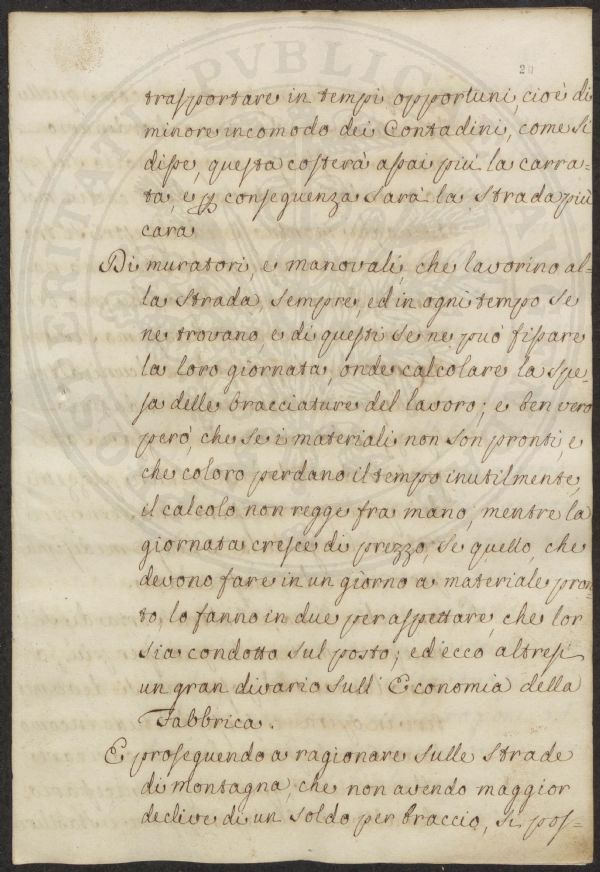 20
trasportare in tempi opportuni, cioè di
minore incomodo dei Contadini, come si
disse, questa costerà assai più la carra-
ta, e p conseguenza sarà la strada più
cara
Di muratori, e manovali, che lavorino al-
la strada, sempre, ed in ogni tempo se
ne trovano, e di questi se ne può fissare
la loro giornata, onde calcolare la spe-
sa delle bracciature del lavoro; e ben vero
però, che se i materiali non son pronti, e
che coloro perdano il tempo inutilmente,
il calcolo non regge fra mano, mentre la
giornata cresce di prezzo, se quello, che
devono fare in un giorno a materiale pron-
to, lo fanno in due per aspettare, che lor
sia condotto sul posto; ed ecco altresi
un gran divario sull' Economia della
Fabbrica.
E proseguendo a ragionare sulle strade
di montagna, che non avendo maggior
declive di un soldo per braccio, si pos-